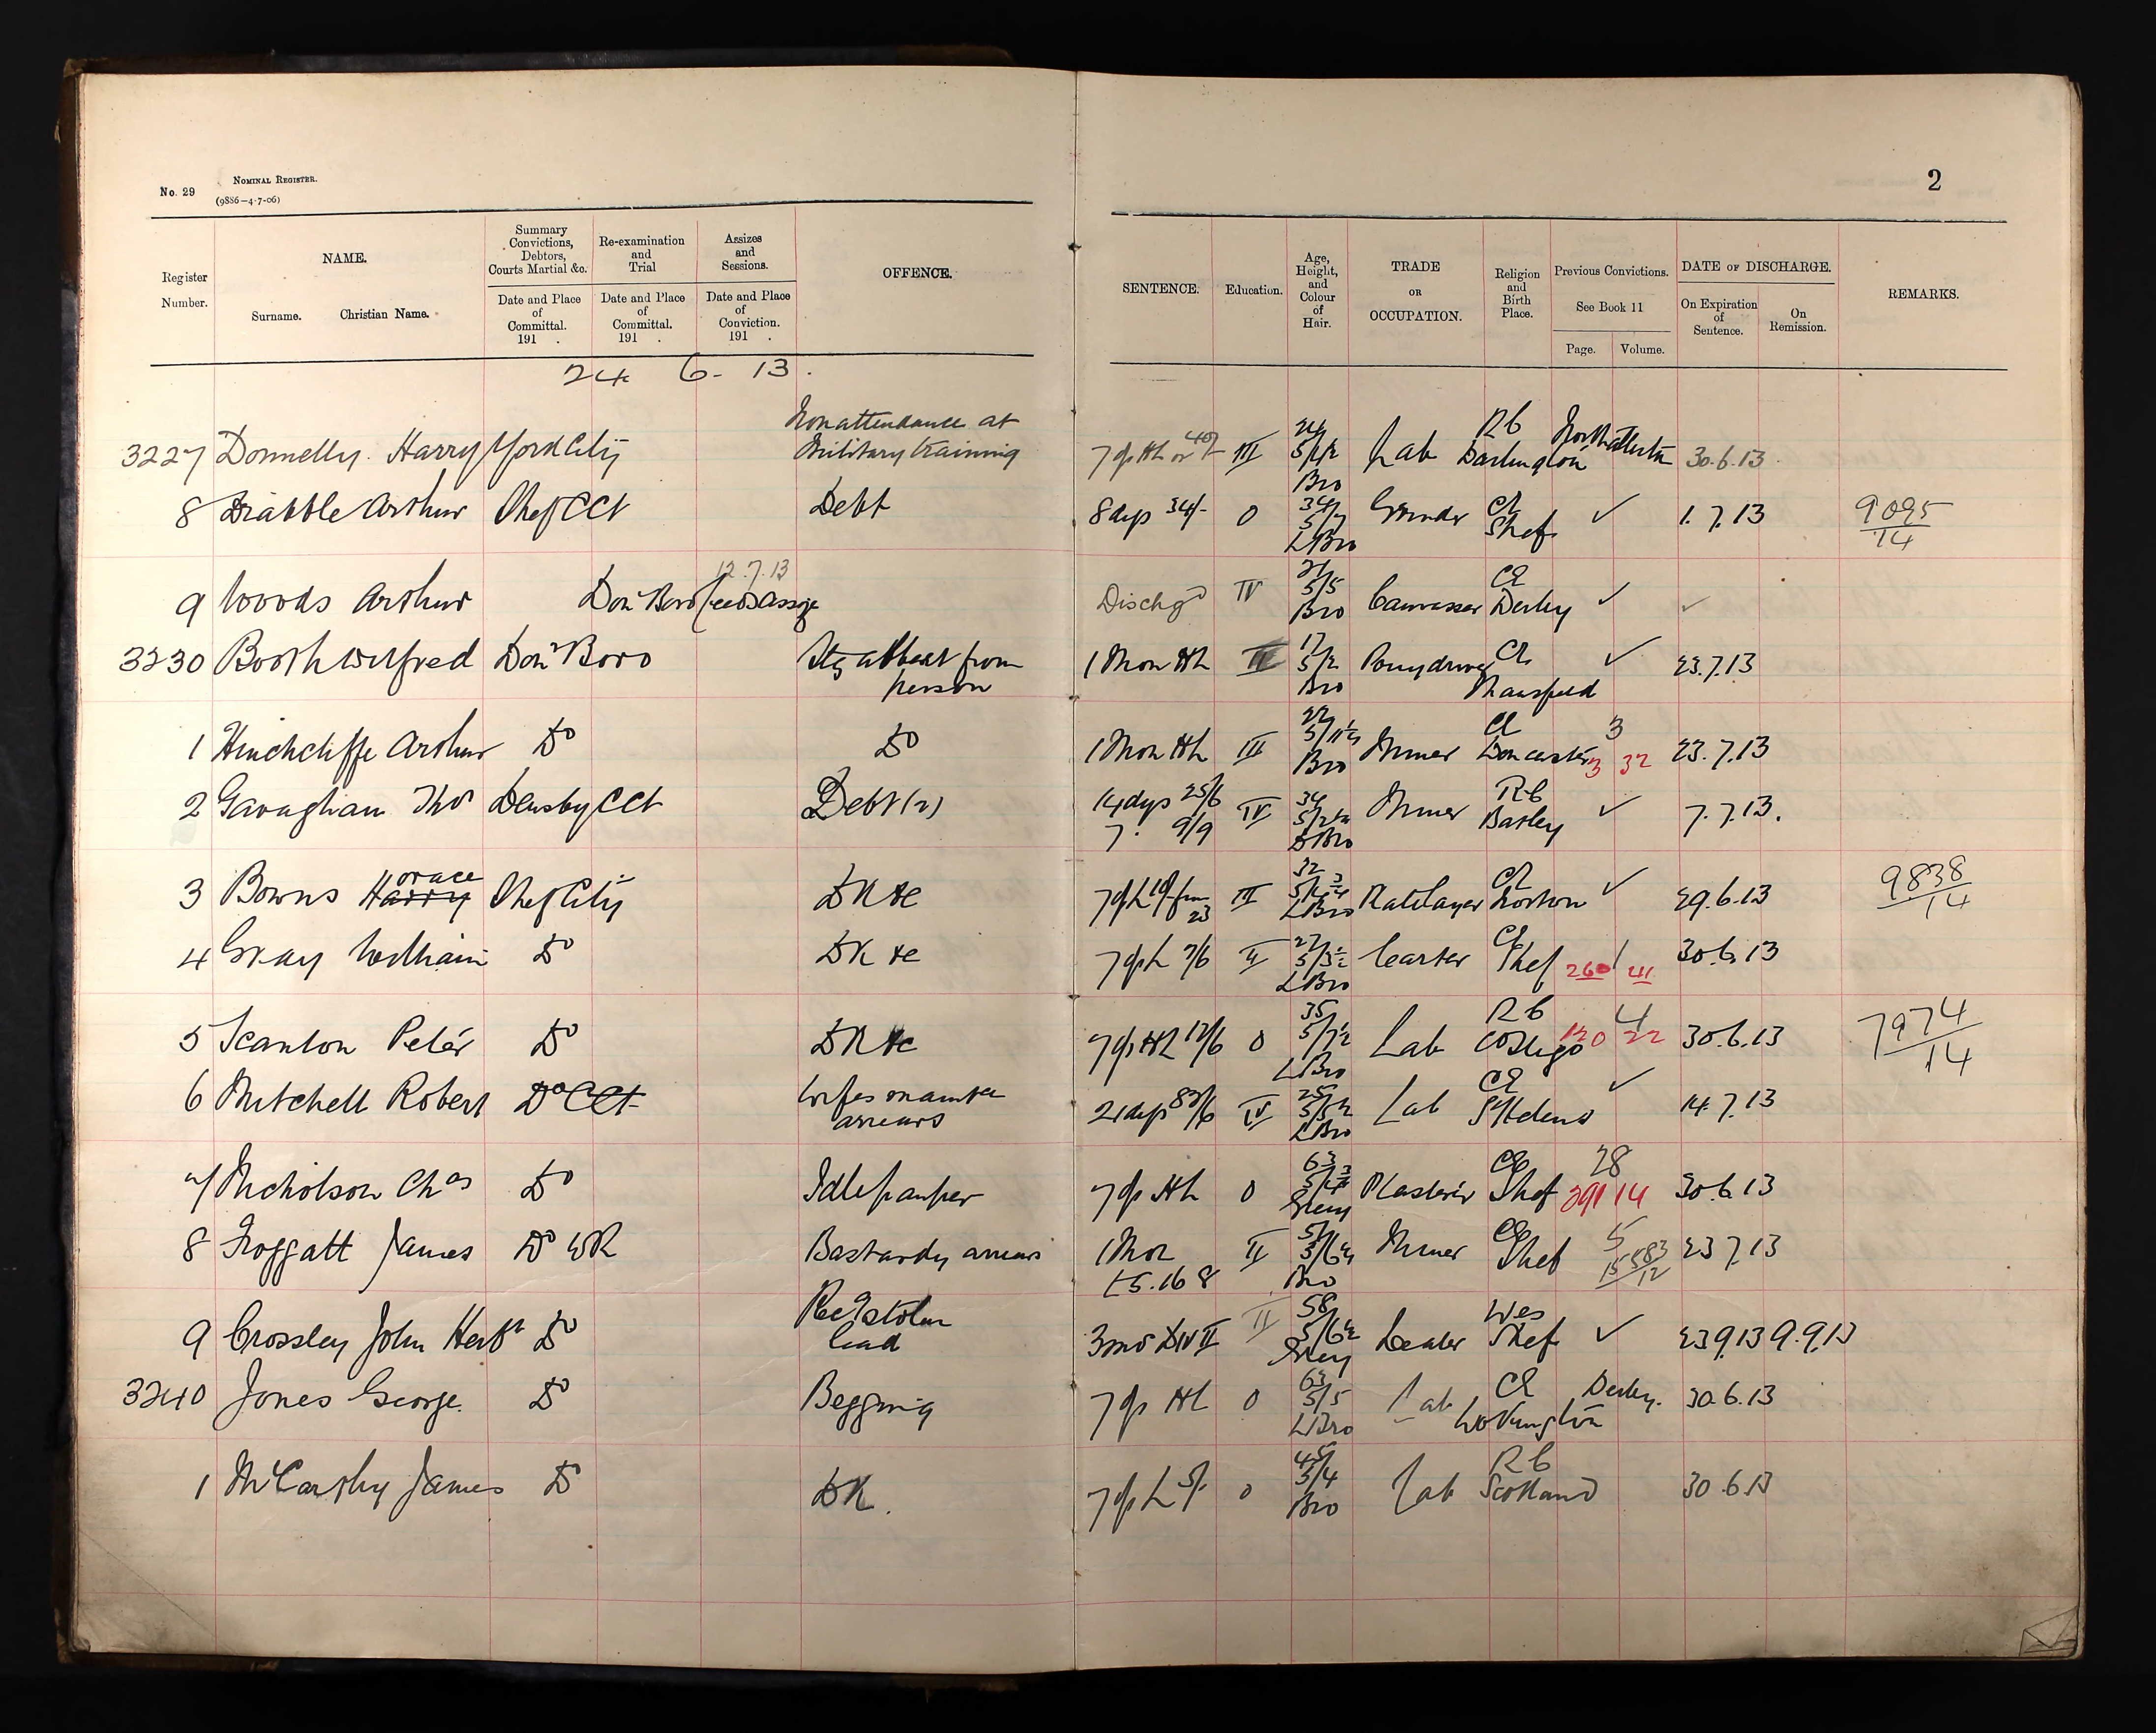 No. 29 NOMINAL REGISTER.
(9886—4-7-06)
2
Register Number.
NAME.
Surname. Christian Name.
Summary Convictions, Debtors, Courts Martial &c.
Date and Place of Committal. 191 .
Re-examination and Trial
Date and Place of Committal. 191 .
Assizes and Sessions.
Date and Place of Conviction. 191 .
OFFENCE.
SENTENCE.
Education.
Age, Height, and Colour of Hair.
TRADE OR OCCUPATION.
Religion and Birth Place.
Previous Convictions.
See Book 11
Page. Volume.
DATE OF DISCHARGE.
On Expiration of Sentence.
On Remission.
REMARKS.
24 6- 13.
3227 Donnelly Harry York City Nonattendance at Military training III 24 Bro Lab RC Darlington Northallerton 30.6.13
8 Drabble Arthur Shef CCt Debt 8 dys 34/- 0 34 5/7 LBro Grinder CE Shef ✓ 1.7.13 9095/14
9 Woods Arthur Donr Boro 12.7.13 Leeds Assize Dischgd IV 21 5/5 Bro Canvasser CE Derby ✓ ✓
3230 Booth Wilfred Donr Boro Stg a meat from person 1 Mon HL III 17 5/2 Bro Ponydriver CE Mansfield ✓ 23.7.13
1 Hinchcliffe Arthur Do Do 1 Mon HL III 22 Bro Miner CE Doncaster 3 3 32 23.7.13
2 Gavaghan Thos Denaby CCt Debt (2) 14 dys 25/6 7 " 9/9 IV 34 DBro Miner RC Batley ✓ 7.7.13.
3 Bowns Harry Horace Shef City DK &c III 32 LBro Platelayer CE Norton ✓ 29.6.13 9838/14
4 Gray William Do DK &c 7 dys L 7/6 II 27 5/3½ LBro Carter CE Shef 260 1 41 30.6.13
5 Scanlon Peter Do DK &c 7 dys HL 12/6 0 35 5/7½ LBro Lab RC Co Sligo 120 4 22 30.6.13 7974/14
6 Mitchell Robert Do CCt Wifes maintce arrears 21 dys IV 25 5/5½ LBro Lab CE St Helens ✓ 14.7.13
7 Nicholson Chas Do Idle pauper 7 dys HL 0 63 Grey Plasterer CE Shef 28 391 14 30.6.13
8 Froggatt James Do WR Bastardy arrears 1 Mon £5.16 8 II Bro Miner CE Shef 5 15583/12 23.7.13
9 Crossley John Herbt Do Recg stolen lead 3 mos Div II II 58 Grey Dealer Wes Shef ✓ 23.9.13 9.9.13
3240 Jones George Do Begging 7 dys HL 0 63 5/5 LBro Lab CE Workington Derby. 30.6.13
1 McCarthy James Do DK. 7 dys L 5/- 0 45 5/4 Bro Lab RC Scotland 30.6.13